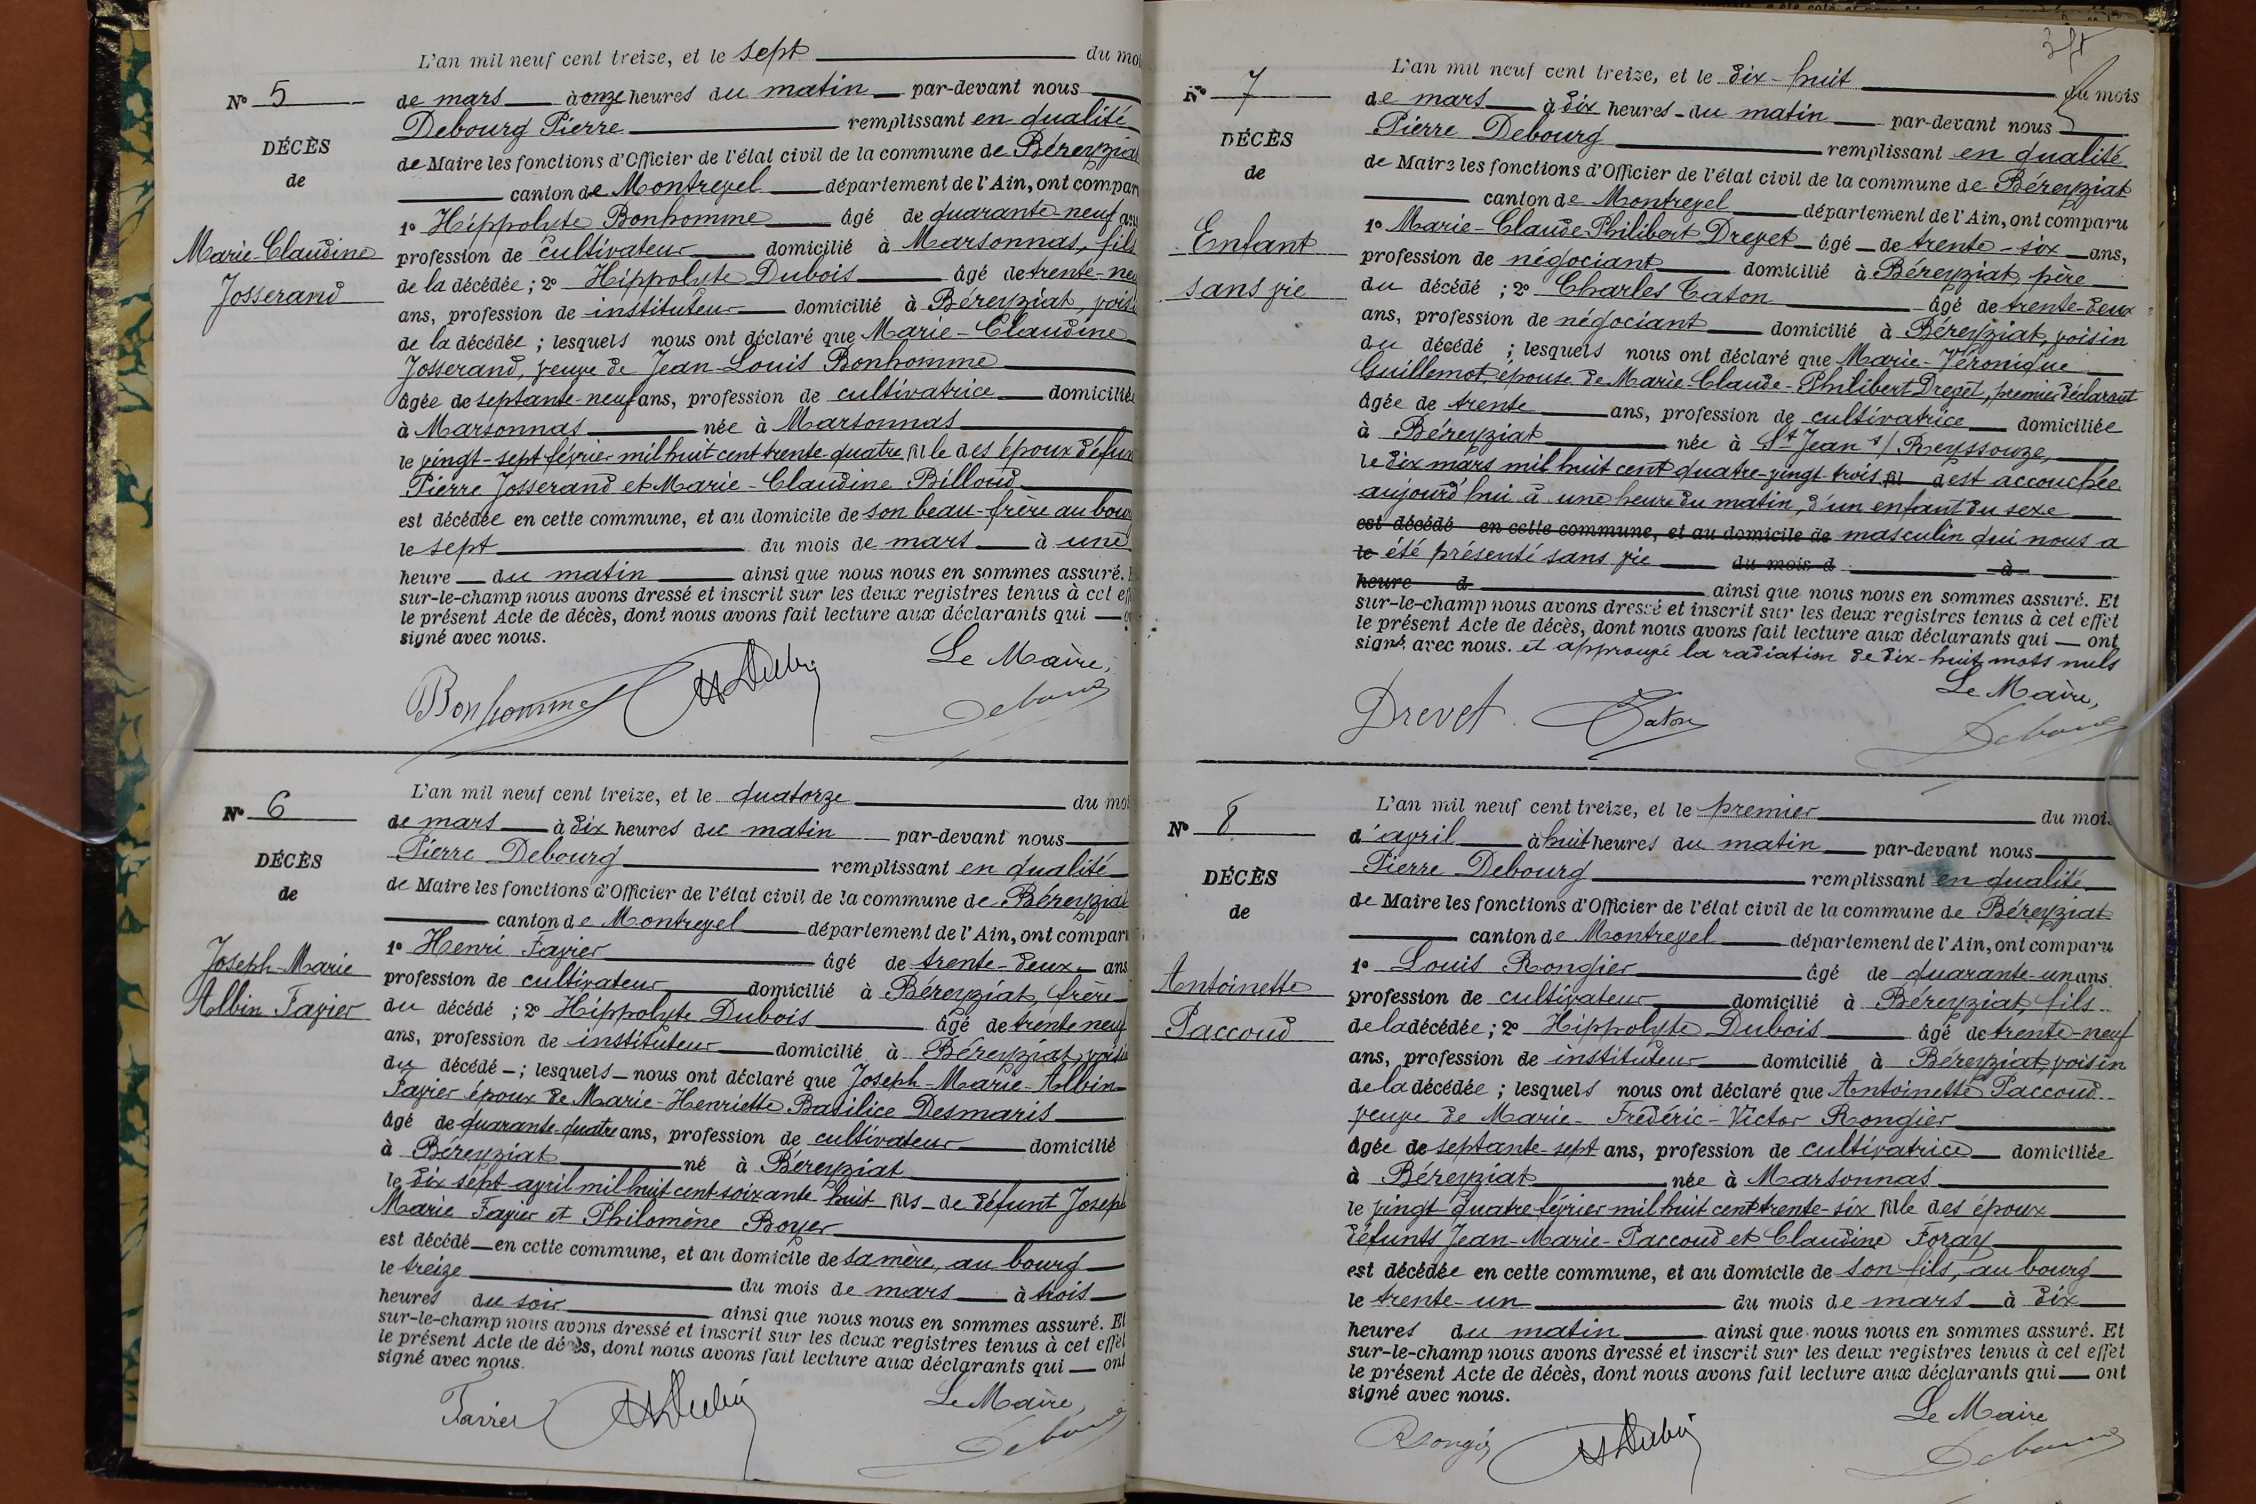 L'an mil neuf cent treize, et le sept du moi
N° 5
de mars à onze heures du matin par-devant nous
Debourg Pierre remplissant en qualité
DÉCÈS
de Maire les fonctions d'Officier de l'état civil de la commune de Béreyziat
de
canton de Montrevel département de l'Ain, ont comparu
1° Hippolyte Bonhomme âgé de quarante-neuf ans
Marie-Claudine
profession de cultivateur domicilié à Marsonnas, fils
Josserand
de la décédée ; 2° Hippolyte Dubois âgé de trente-neuf
ans, profession de instituteur domicilié à Béreyziat, voisin
de la décédée ; lesquels nous ont déclaré que Marie-Claudine
Josserand, veuve de Jean-Louis Bonhomme
âgée de septante-neuf ans, profession de cultivatrice domiciliée
à Marsonnas née à Marsonnas
le vingt-sept février mil huit cent trente-quatre fille des époux défunts
Pierre Josserand et Marie-Claudine Billoud
est décédée en cette commune, et au domicile de son beau-frère au bourg
le sept du mois de mars à une
heure du matin ainsi que nous nous en sommes assuré. E
sur-le-champ nous avons dressé et inscrit sur les deux registres tenus à cet eff
le présent Acte de décès, dont nous avons fait lecture aux déclarants qui o
signé avec nous.
Le Maire,
Bonhomme HDubois Debourg
L'an mil neuf cent treize, et le quatorze du moi
N° 6
de mars à dix heures du matin par-devant nous
Pierre Debourg remplissant en qualité
DÉCÈS
de Maire les fonctions d'Officier de l'état civil de la commune de Béreyziat
de
canton de Montrevel département de l'Ain, ont comparu
1° Henri Favier âgé de trente-deux ans
Joseph-Marie
profession de cultivateur domicilié à Béreyziat, frère
Albin Favier
du décédé ; 2° Hippolyte Dubois âgé de trente neuf
ans, profession de instituteur domicilié à Béreyziat, voisin
du décédé ; lesquels nous ont déclaré que Joseph-Marie-Albin
Favier époux de Marie-Henriette Basilice Desmaris
âgé de quarante-quatre ans, profession de cultivateur domicilié
à Béreyziat né à Béreyziat
le dix sept avril mil huit cent soixante-huit fils de défunt Joseph
Marie Favier et Philomène Boyer
est décédé en cette commune, et au domicile de sa mère, au bourg
le treize du mois de mars à trois
heures du soir ainsi que nous nous en sommes assuré. Et
sur-le-champ nous avons dressé et inscrit sur les deux registres tenus à cet effet
le présent Acte de décès, dont nous avons fait lecture aux déclarants qui ont
signé avec nous.
Le Maire,
Favier HDubois Debourg
L'an mil neuf cent treize, et le dix-huit du mois
N° 7
de mars à dix heures du matin par-devant nous
Pierre Debourg remplissant en qualité
DÉCÈS
de Maire les fonctions d'Officier de l'état civil de la commune de Béreyziat
de
canton de Montrevel département de l'Ain, ont comparu
1° Marie-Claude-Philibert Drevet âgé de trente-six ans,
Enfant
profession de négociant domicilié à Béreyziat, père
sans vie
du décédé ; 2° Charles Caton âgé de trente-deux
ans, profession de négociant domicilié à Béreyziat, voisin
du décédé ; lesquels nous ont déclaré que Marie-Véronique
Guillemot, épouse de Marie Claude-Philibert Drevet, premier déclarant
âgée de trente ans, profession de cultivatrice domiciliée
à Béreyziat née à St Jean s/ Reyssouze,
le dix mars mil huit cent quatre-vingt trois fil d est accouchée
aujourd'hui à une heure du matin, d'un enfant du sexe
est décédé en cette commune, et au domicile de masculin qui nous a
le été présenté sans vie du mois d à
heure d ainsi que nous nous en sommes assuré. Et
sur-le-champ nous avons dressé et inscrit sur les deux registres tenus à cet effet
le présent Acte de décès, dont nous avons fait lecture aux déclarants qui ont
signé avec nous. et approuvé la radiation de dix-huit mots nuls
Le Maire,
Drevet Caton Debourg
L'an mil neuf cent treize, et le premier du mois
N° 8
d'avril à huit heures du matin par-devant nous
Pierre Debourg remplissant en qualité
DÉCÈS
de Maire les fonctions d'Officier de l'état civil de la commune de Béreyziat
de
canton de Montrevel département de l'Ain, ont comparu
1° Louis Rongier âgé de quarante-un ans
Antoinette
profession de cultivateur domicilié à Béreyziat, fils
Paccoud
de la décédée ; 2° Hippolyte Dubois âgé de trente-neuf
ans, profession de instituteur domicilié à Béreyziat, voisin
de la décédée ; lesquels nous ont déclaré que Antoinette Paccoud
veuve de Marie-Frédéric-Victor Rongier
âgée de septante-sept ans, profession de cultivatrice domiciliée
à Béreyziat née à Marsonnas
le vingt-quatre février mil huit cent trente-six fille des époux
défunts Jean-Marie-Paccoud et Claudine Foray
est décédée en cette commune, et au domicile de son fils, au bourg
le trente-un du mois de mars à dix
heures du matin ainsi que nous nous en sommes assuré. Et
sur-le-champ nous avons dressé et inscrit sur les deux registres tenus à cet effet
le présent Acte de décès, dont nous avons fait lecture aux déclarants qui ont
signé avec nous.
Le Maire
Rongier HDubois Debourg